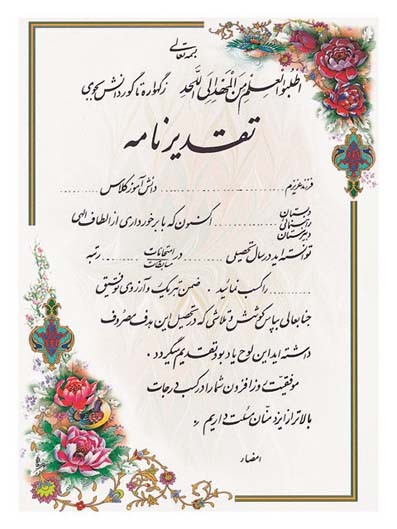 بسمه تعالی
اطلبوا العلم من المهد الی اللحد ز گهواره تا گور دانش بجوی
تقدیرنامه
فرزند عزیزم .......... دانش آموز کلاس ..........
دبستان
راهنمائی .......... اکنون که با برخورداری از الطاف الهی
دبیرستان
توانسته اید در سال تحصیلی .......... در امتحانات .......... رتبه
مسابقات
.......... را کسب نمائید . ضمن تبریک و آرزوی توفیق
جنابعالی بپاس کوشش و تلاشی که در تحصیل این هدف مصروف
داشته اید این لوح یادبود تقدیم میگردد .
موفقیت روزافزون شما را در کسب درجات
بالاتر از ایزد منان مسئلت داریم
امضاء